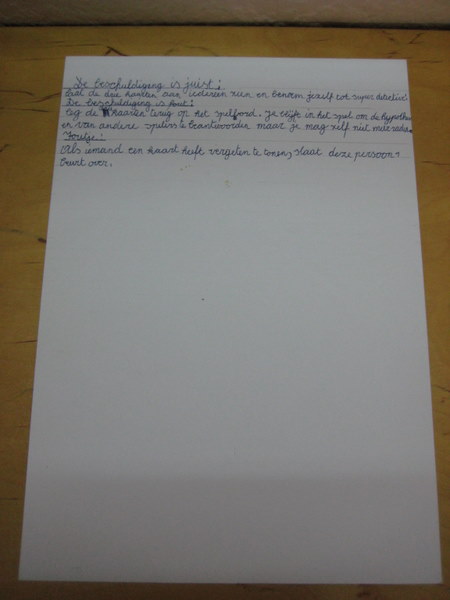 De beschuldiging is juist:
Laat de drie kaarten aan iedereen zien en benoem jezelf tot super detective
De beschuldiging is fout:
Leg de kaarten terug op het spelbord. Je blijft in het spel om de hypothe
en van andere spelers te beantwoorden maar je mag zelf niet meer
Foutje:
Als iemand een kaart heeft vergeten te tonen, slaat deze persoon
beurt over.